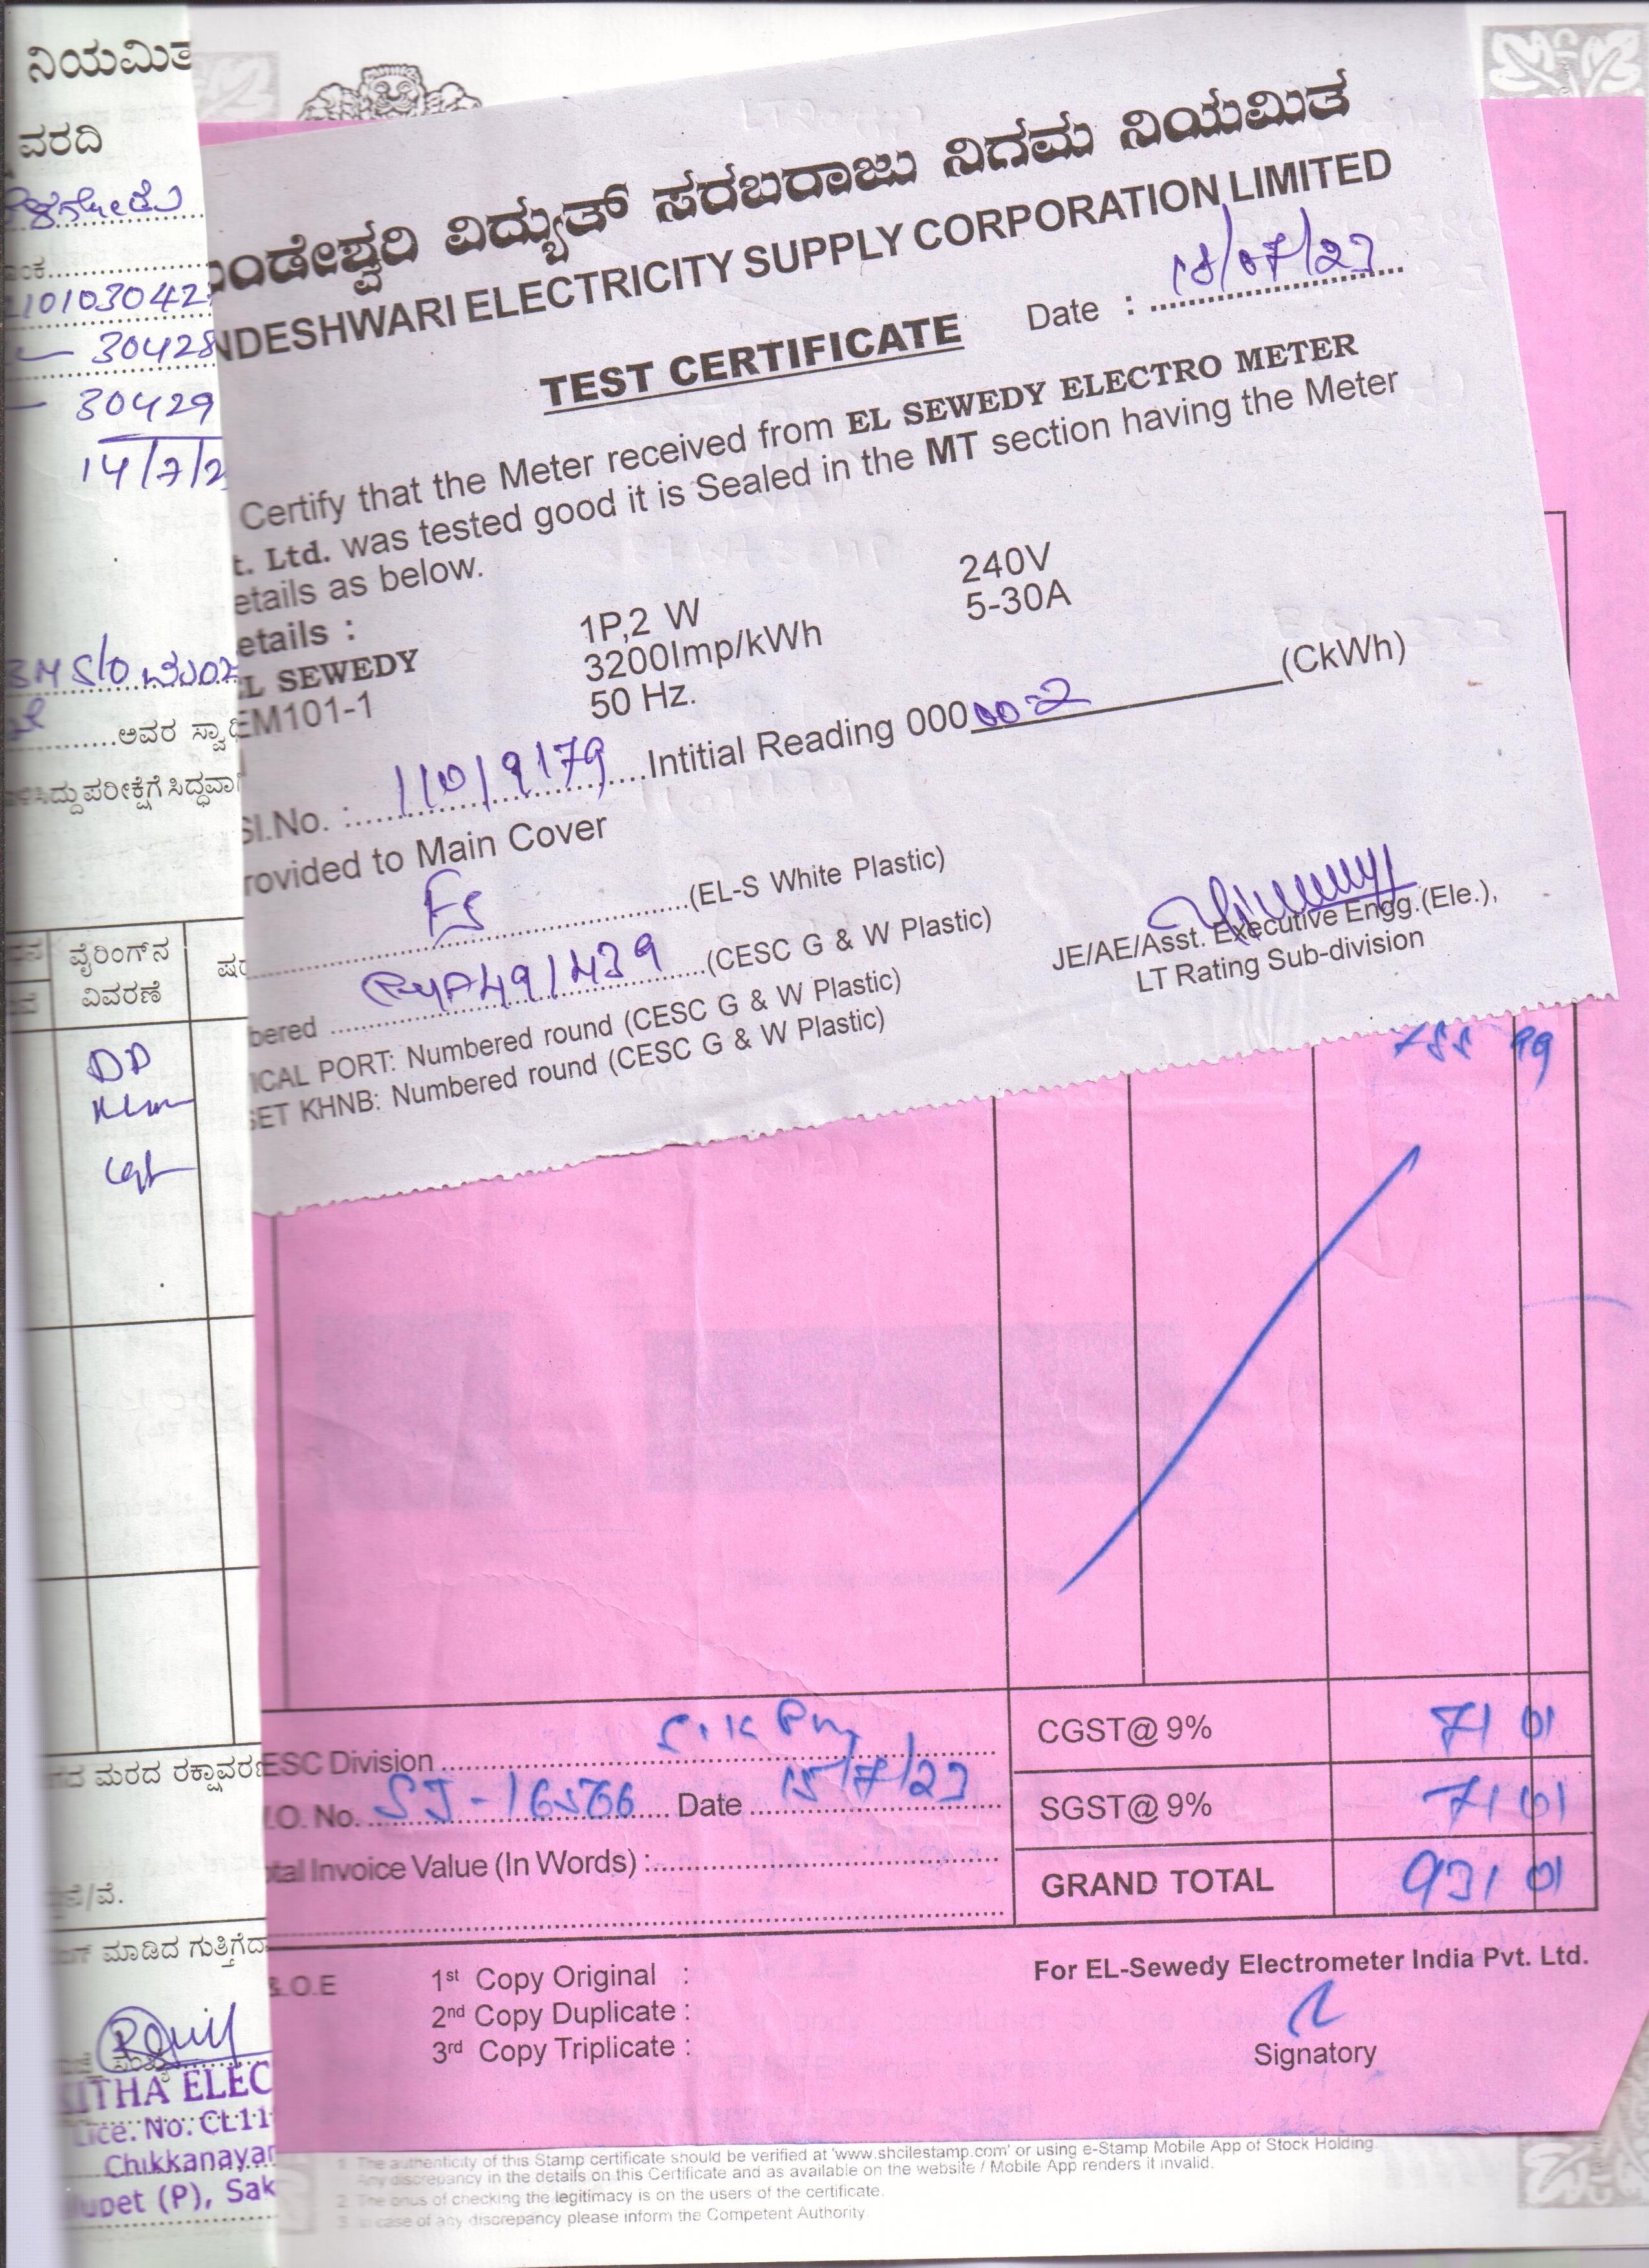 ನಿಯಮಿತ
ವರದಿ
30428
30429
14/7/2
S/O
ಅವರ
ಪರೀಕ್ಷೆಗೆ ಸಿದ್ಧವಾಗಿ
ವೈರಿಂಗ್‌ನ
ವಿವರಣೆ
DP
ಮರದ ರಕ್ಷಾವರಣ
ಮಾಡಿದ ಗುತ್ತಿಗೆದಾ
ITHA ELEC
Lice. No. CL11
Chikkanayar
lupet (P), Sak
ಂಡೇಶ್ವರಿ ವಿದ್ಯುತ್ ಸರಬರಾಜು ನಿಗಮ ನಿಯಮಿತ
NDESHWARI ELECTRICITY SUPPLY CORPORATION LIMITED
Date : 15/07/23
TEST CERTIFICATE
Certify that the Meter received from EL SEWEDY ELECTRO METER
t. Ltd. was tested good it is Sealed in the MT section having the Meter
etails as below.
etails :
EL SEWEDY 1P,2 W 240V
EM101-1 3200Imp/kWh 5-30A
50 Hz.
Sl.No. : 11019179 Intitial Reading 000 00-2 (CkWh)
rovided to Main Cover
ES (EL-S White Plastic)
bered (CESC G & W Plastic)
ICAL PORT: Numbered round (CESC G & W Plastic)
SET KHNB: Numbered round (CESC G & W Plastic)
JE/AE/Asst. Executive Engg.(Ele.),
LT Rating Sub-division
ESC Division
.O. No. SJ-16566 Date 15/7/23
tal Invoice Value (In Words) :
CGST@ 9% 71 01
SGST@ 9% 71 01
GRAND TOTAL 931 01
&.O.E
1st Copy Original :
2nd Copy Duplicate :
3rd Copy Triplicate :
For EL-Sewedy Electrometer India Pvt. Ltd.
Signatory
1 The authenticity of this Stamp certificate should be verified at 'www.shcilestamp.com' or using e-Stamp Mobile App of Stock Holding.
Any discrepancy in the details on this Certificate and as available on the website / Mobile App renders it invalid.
2 The onus of checking the legitimacy is on the users of the certificate.
3 In case of any discrepancy please inform the Competent Authority.